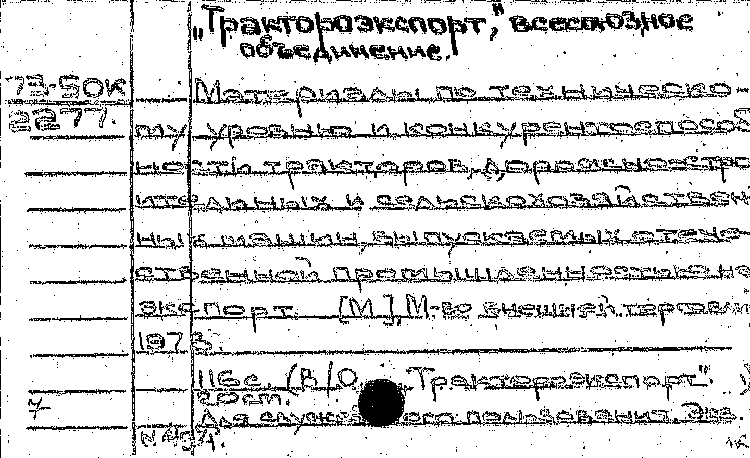 „Трактороэкспорт," всесоюзное
объединение.
73-50К
2277.
Материалы по техническо-
му уровню и конкурентоспособ
ности тракторов, дорожно-стро
ительных и сельскохозяйствен
ных машин, выпускаемых отече-
ственной промышленностью на
экспорт. [М], М-во внешней торговли
1973.
116 с. (В/О „Трактороэкспорт".
20 см.
Для служебного пользования. Экз.